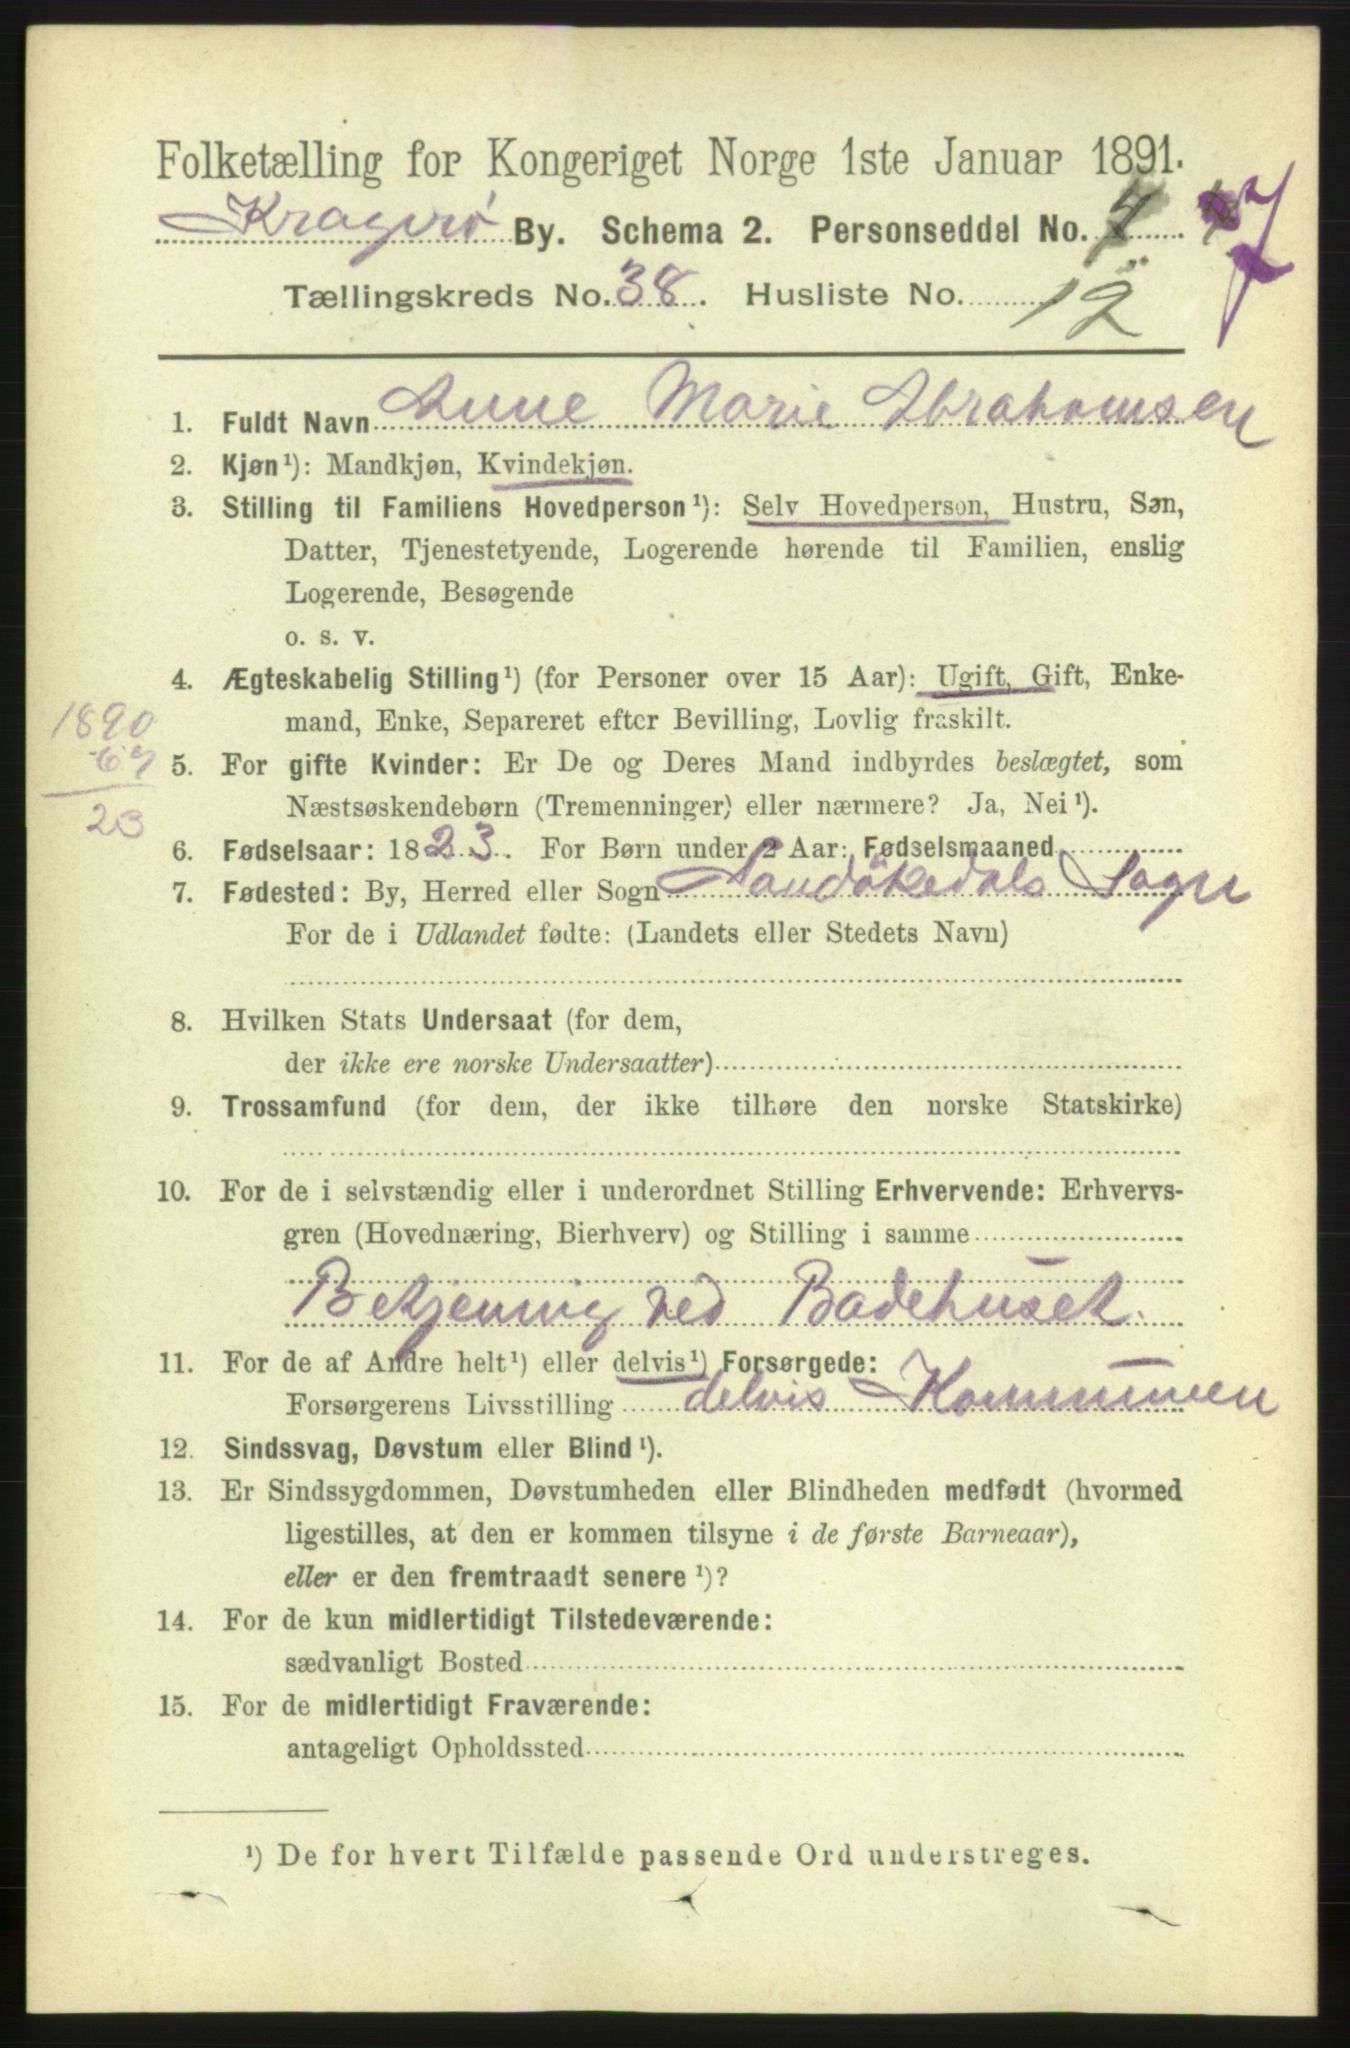 Folketælling for Kongeriget Norge 1ste Januar 1891.
Kragerø By. Schema 2. Personseddel No. 7
Tællingskreds No. 38. Husliste No. 12
1. Fuldt Navn Anne Marie Abrahamsen
2. Kjøn¹): Mandkjøn, Kvindekjøn.
3. Stilling til Familiens Hovedperson¹): Selv Hovedperson, Hustru, Søn,
Datter, Tjenestetyende, Logerende hørende til Familien, enslig
Logerende, Besøgende
o. s. v.
4. Ægteskabelig Stilling¹) (for Personer over 15 Aar): Ugift, Gift, Enke-
mand, Enke, Separeret efter Bevilling, Lovlig fraskilt.
1890
67
23
5. For gifte Kvinder: Er De og Deres Mand indbyrdes beslægtet, som
Næstsøskendebørn (Tremenninger) eller nærmere? Ja, Nei¹).
6. Fødselsaar: 1823. For Børn under 2 Aar: Fødselsmaaned
7. Fødested: By, Herred eller Sogn Sandökedals Sogn
For de i Udlandet fødte: (Landets eller Stedets Navn)
8. Hvilken Stats Undersaat (for dem,
der ikke ere norske Undersaatter)
9. Trossamfund (for dem, der ikke tilhøre den norske Statskirke)
10. For de i selvstændig eller i underordnet Stilling Erhvervende: Erhvervs-
gren (Hovednæring, Bierhverv) og Stilling i samme
Betjening ved Badehuset.
11. For de af Andre helt¹) eller delvis¹) Forsørgede:
Forsørgerens Livsstilling delvis Kommunen
12. Sindssvag, Døvstum eller Blind¹).
13. Er Sindssygdommen, Døvstumheden eller Blindheden medfødt (hvormed
ligestilles, at den er kommen tilsyne i de første Barneaar),
eller er den fremtraadt senere¹)?
14. For de kun midlertidigt Tilstedeværende:
sædvanligt Bosted
15. For de midlertidigt Fraværende:
antageligt Opholdssted
¹) De for hvert Tilfælde passende Ord understreges.